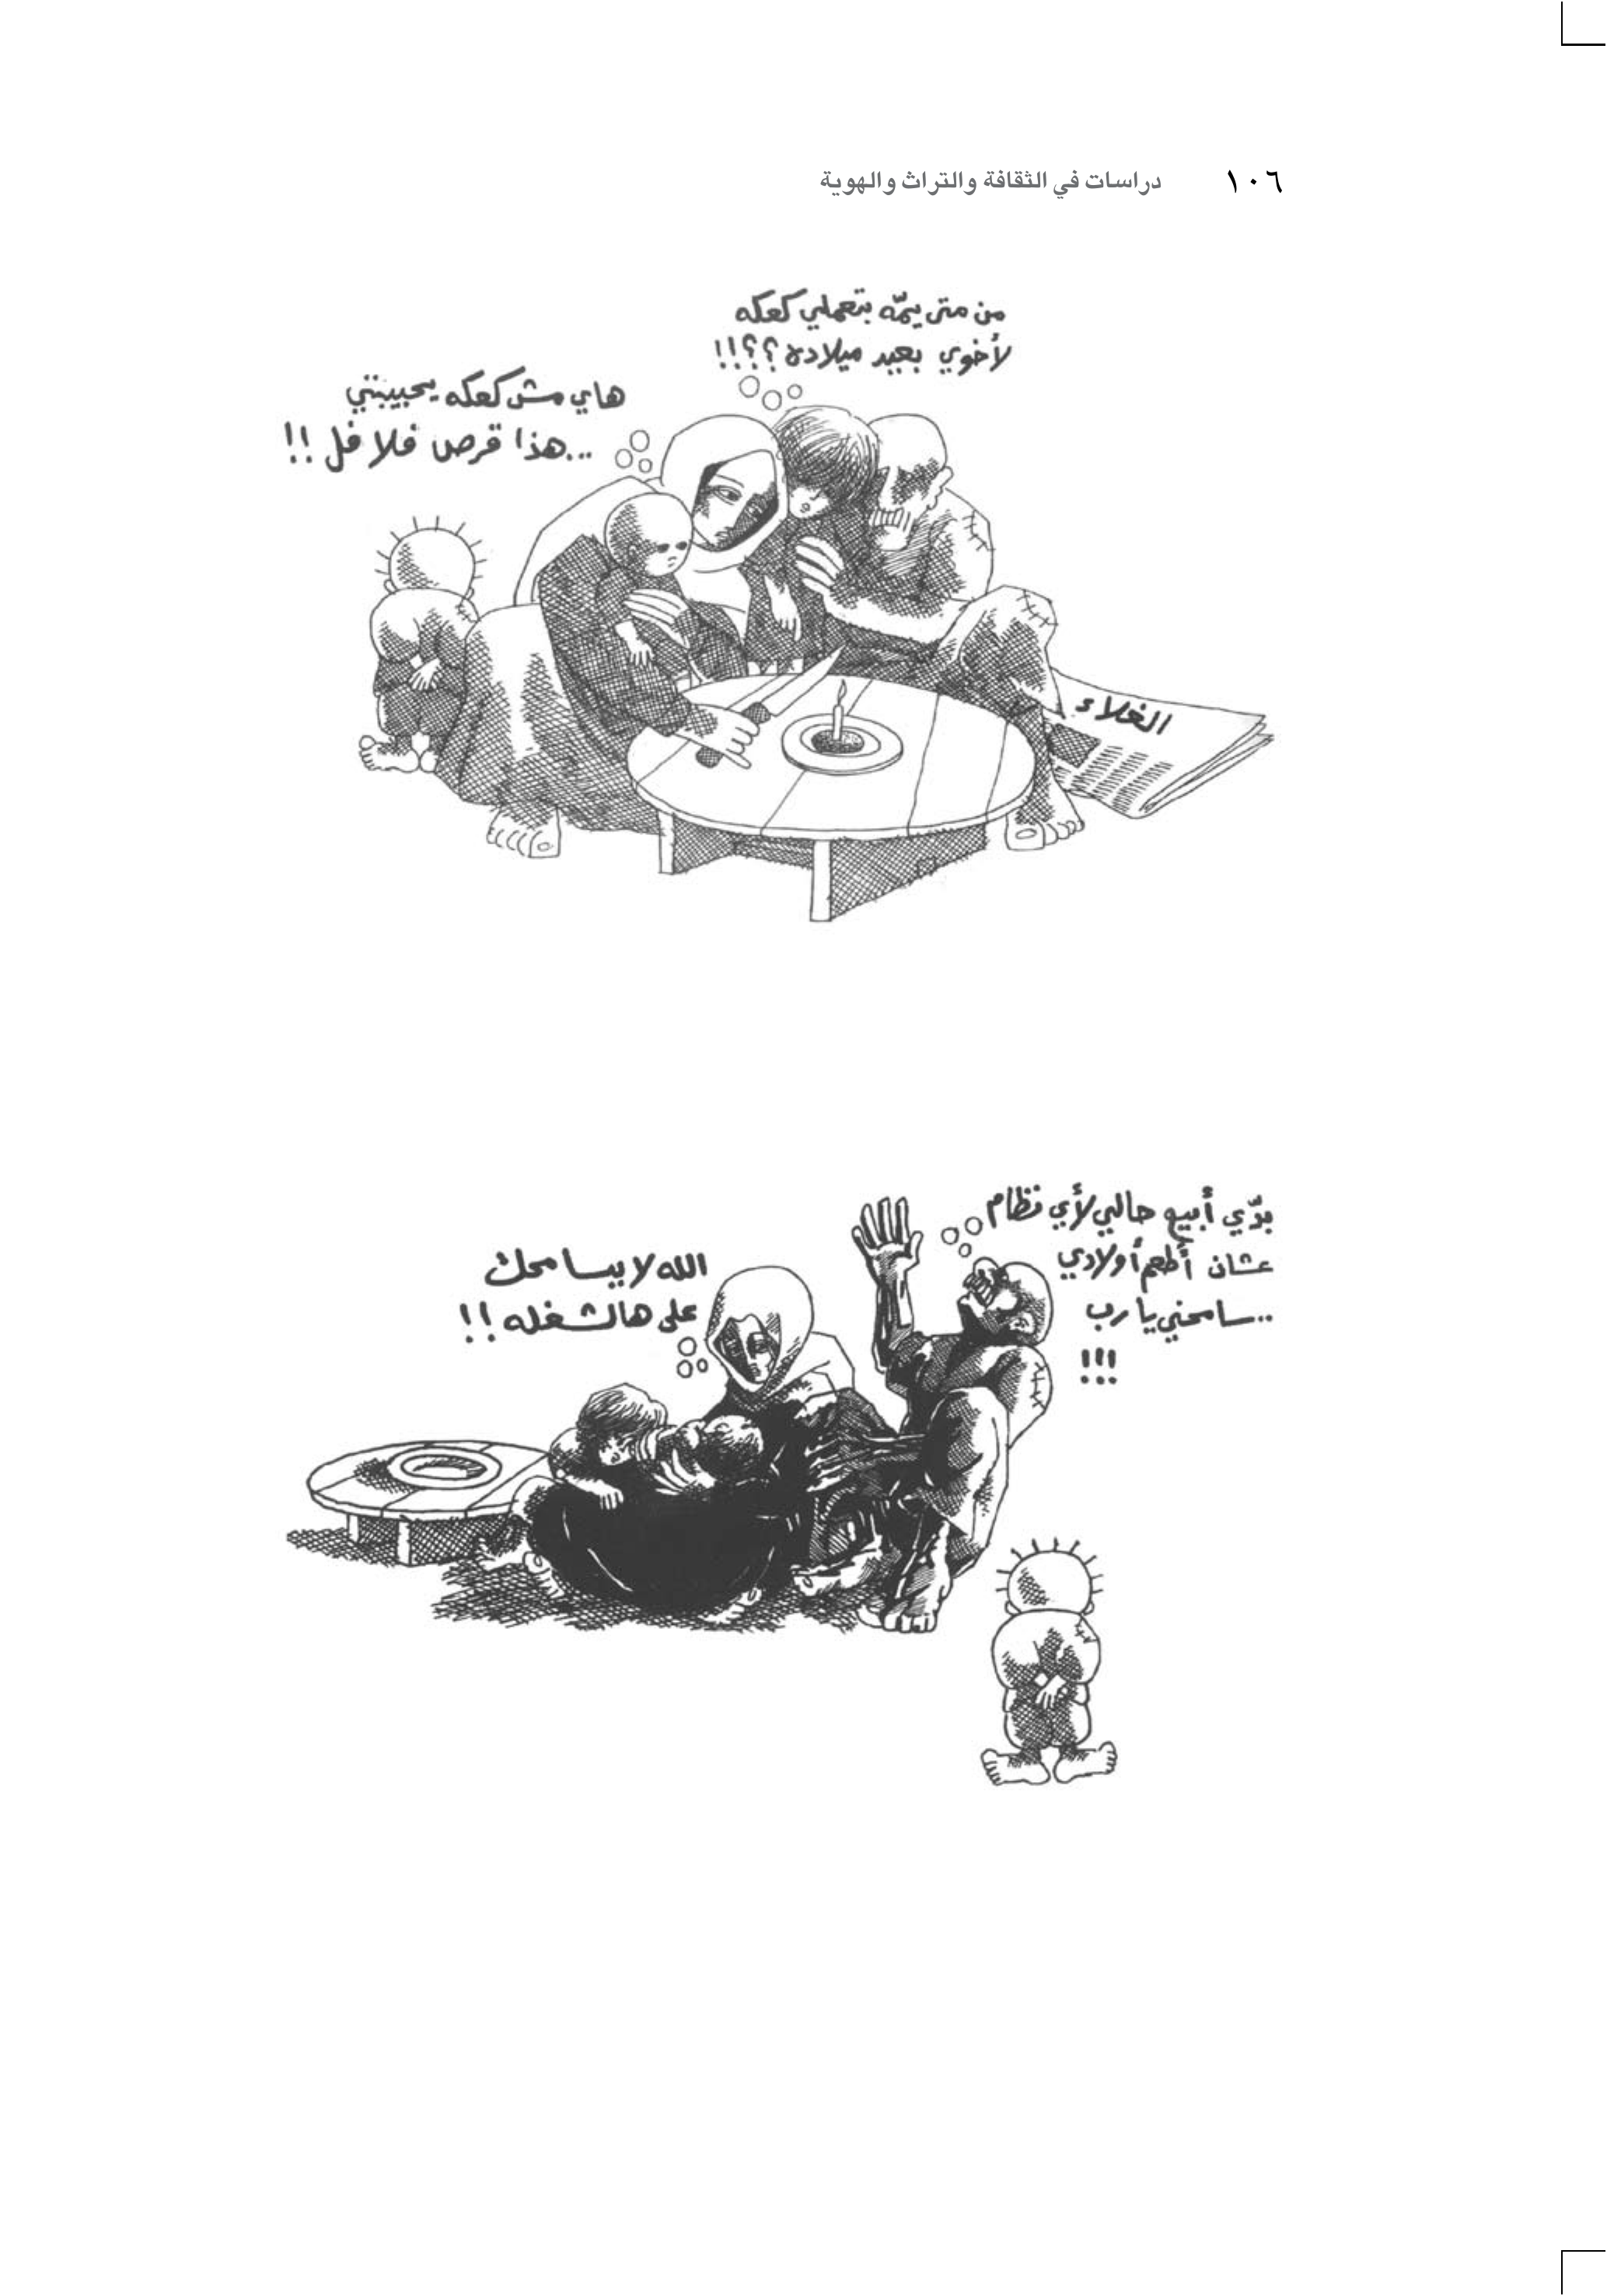 ١٠٦ دراسات في الثقافة والتراث والهوية
من متى يمّه بتعملي كعكه
لأخوي بعيد ميلاده ؟؟!!
هاي مش كعكه يحبيبتي
...هذا قرص فلافل !!
الغلاء
بدّي أبيع حالي لأي نظام
عشان أطعم أولادي
..سامحني يا رب
!!!
الله لا يسامحك
على هالشغله !!